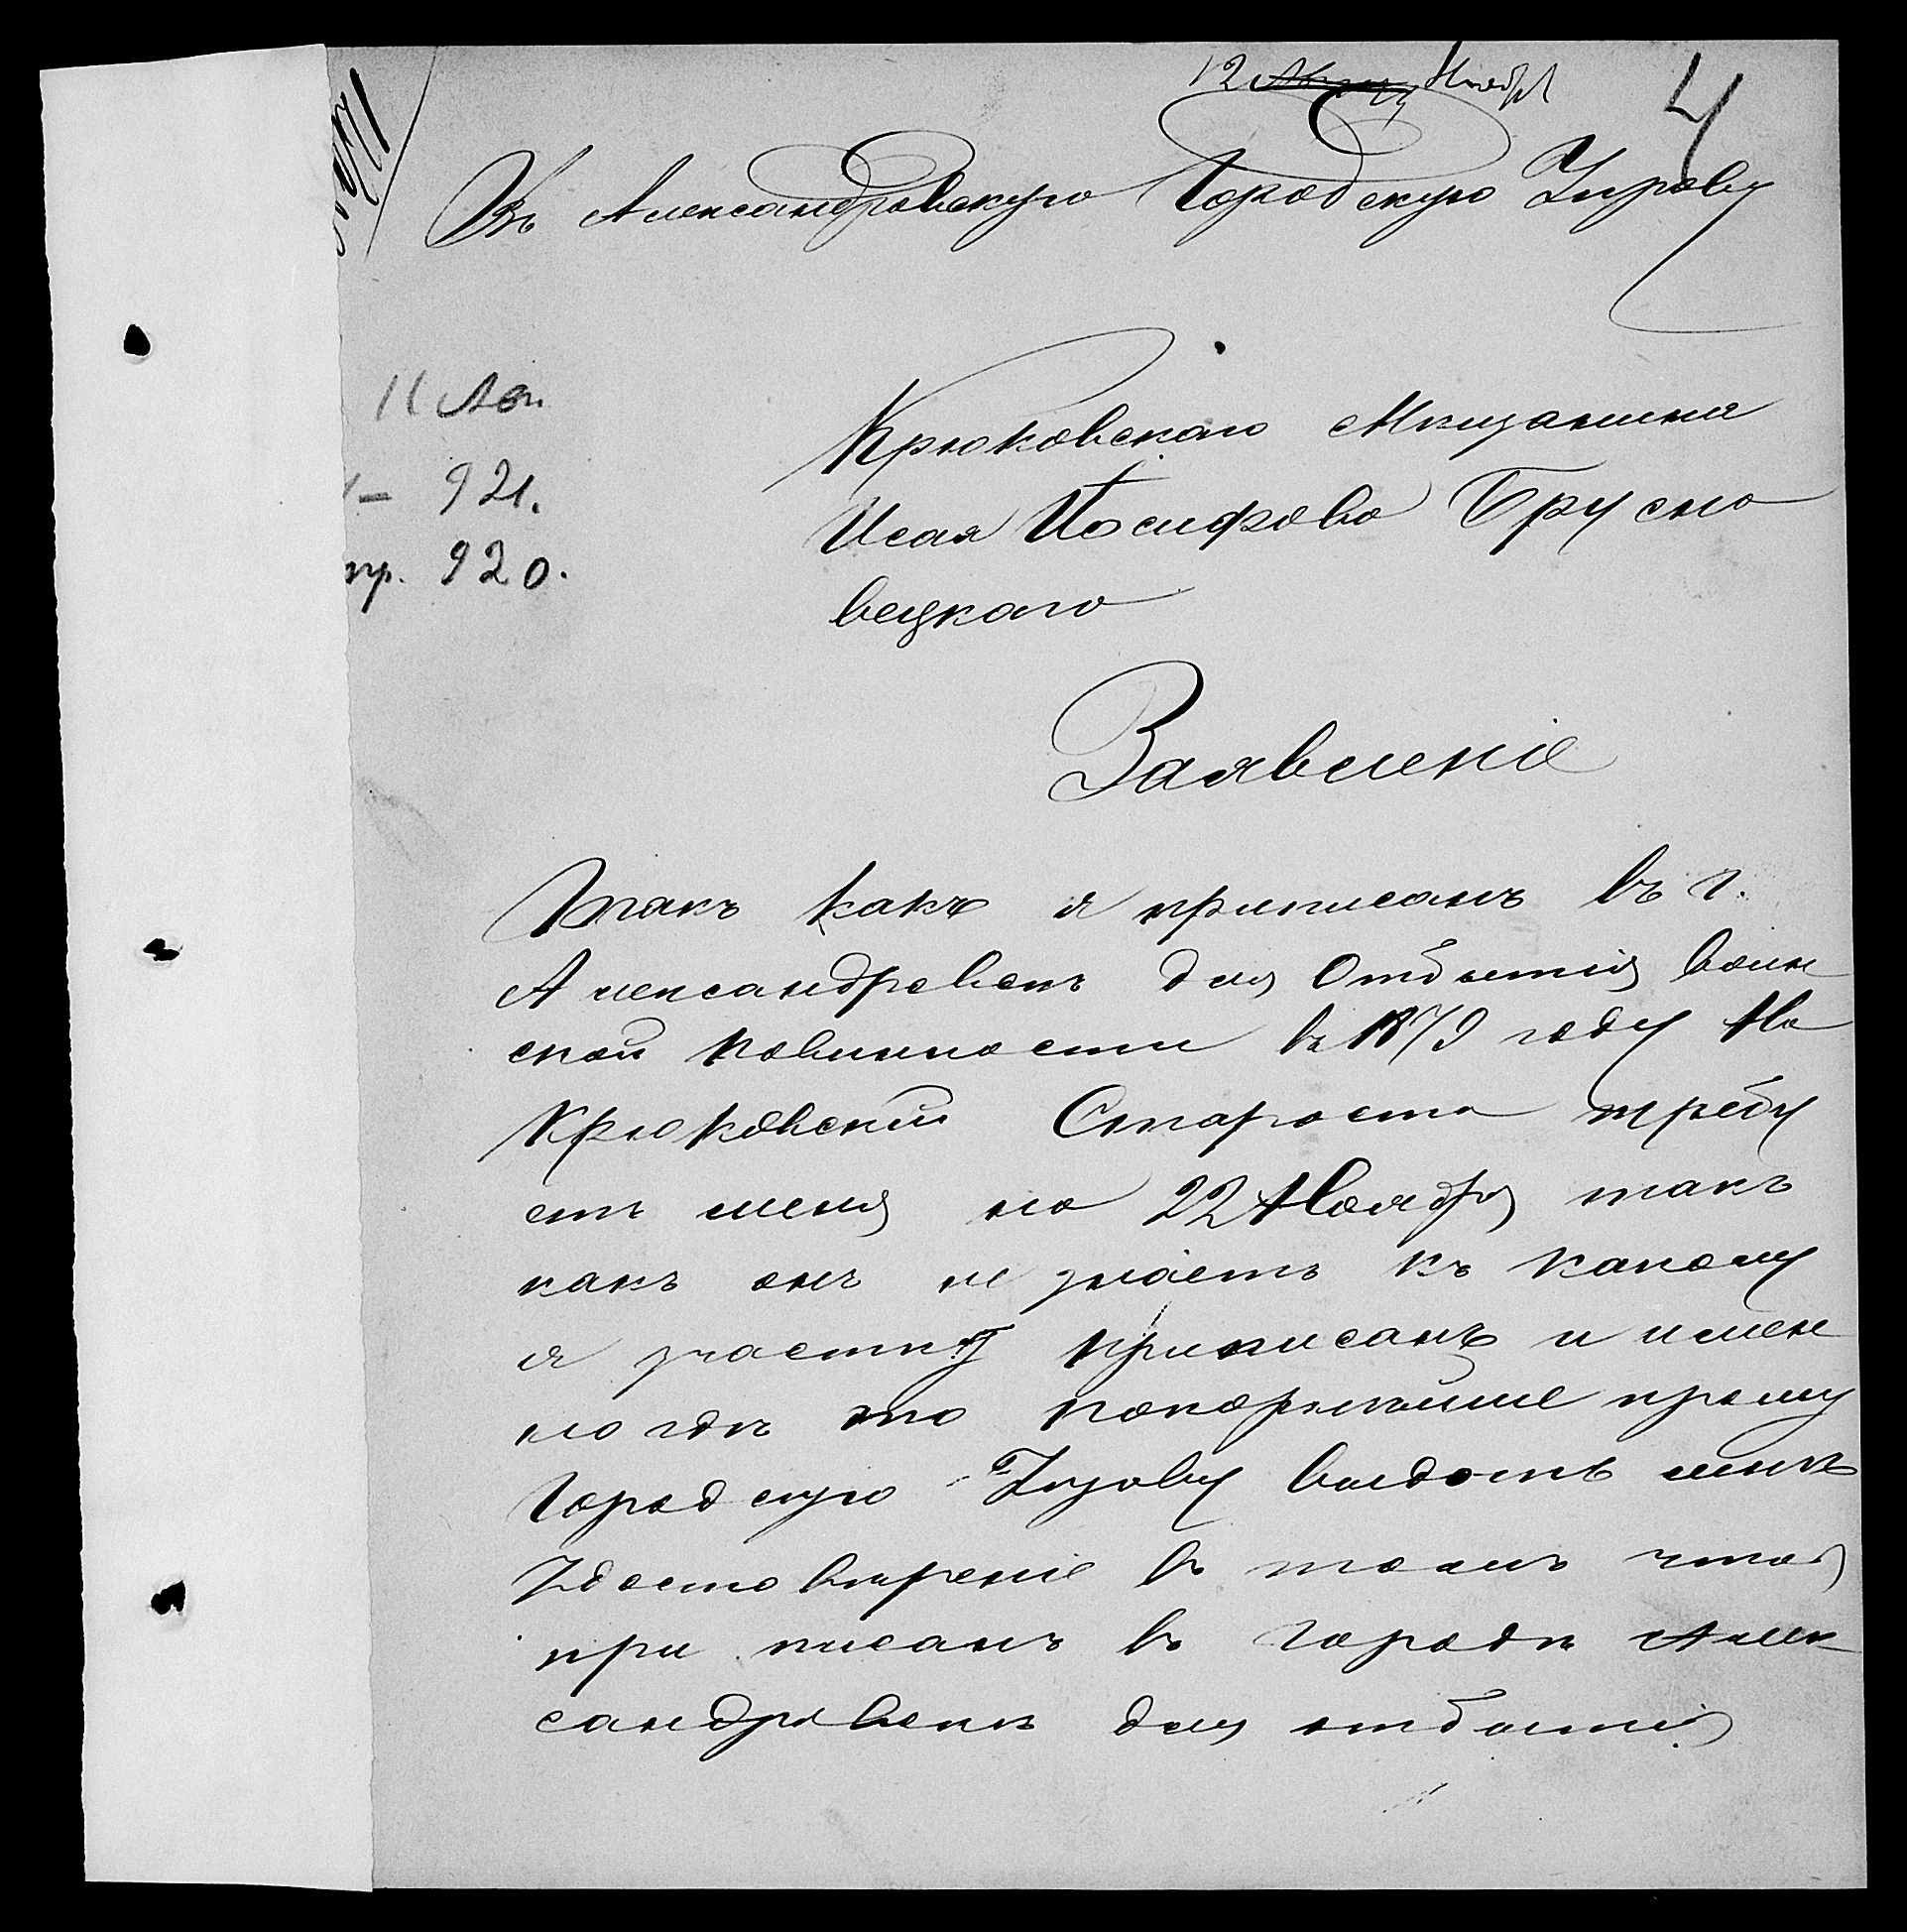 12 Ноября
4
Въ Александровскую Городскую Управу
11 Ав.
921.
920.
Крюковскаго Мѣщанина
Исая Іосифова Брусно
вецкаго
Заявленіе
Такъ какъ я приписанъ въ г.
Александровскѣ для отбытія воин
ской повинности въ 1879 году Но
Крюковскій Староста требу
етъ меня на 22 Ноября такъ
какъ онъ не знаетъ къ какому
я участку приписанъ и имен
но гдѣ то покорнѣйше прошу
Городскую Управу выдать мнѣ
Удостовѣреніе въ томъ что я
при писанъ въ городѣ Алек
сандровскѣ для отбытія